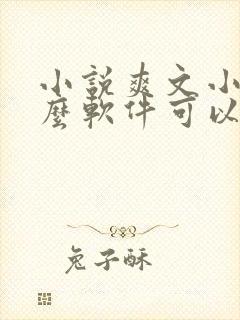 小説爽文小
麼軟件可以
兔子酥